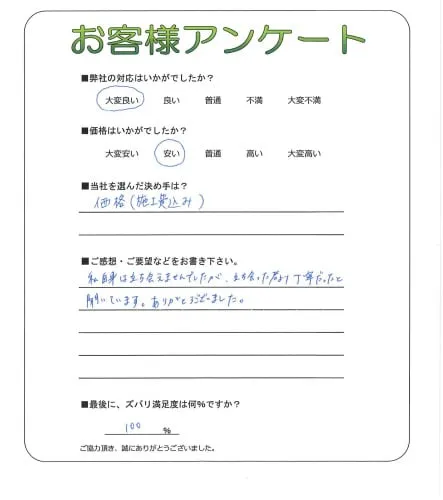 お客様アンケート
■弊社の対応はいかがでしたか？
大変良い 良い 普通 不満 大変不満
■価格はいかがでしたか？
大変安い 安い 普通 高い 大変高い
■当社を選んだ決め手は？
価格(施工費込み)
■ご感想・ご要望などをお書き下さい。
私自身は立ち会えませんでしたが、立ち会った者より丁寧だったと
聞いています。ありがとうございました。
■最後に、ズバリ満足度は何%ですか？
100 %
ご協力頂き、誠にありがとうございました。